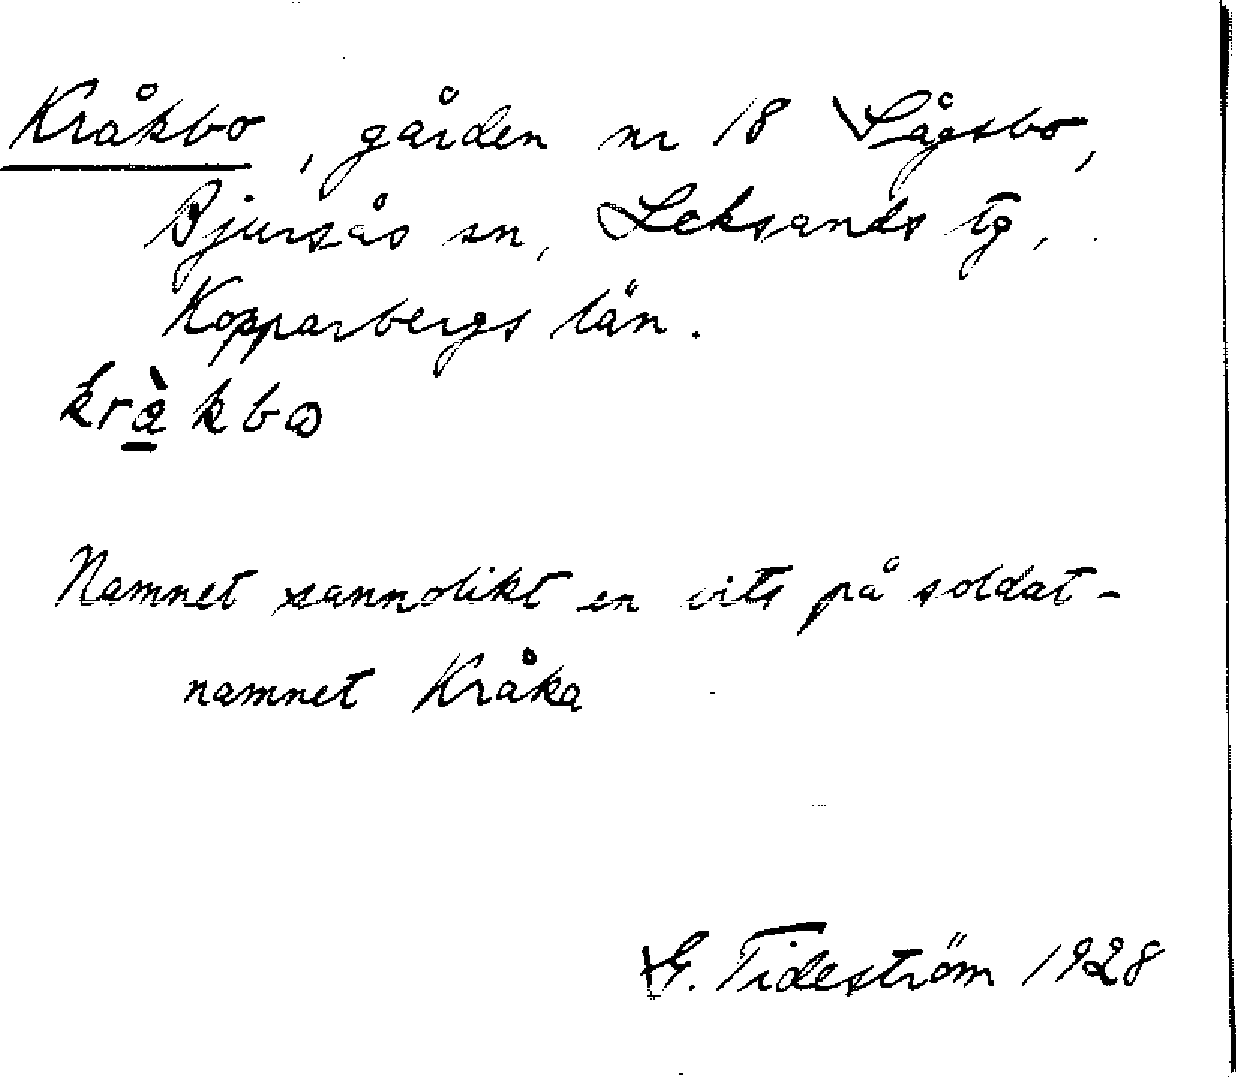 Kråkbo, gården nr 18 Lågsbo,
Bjursås sn, Leksands tg,
Kopparbergs län.
kràkbω
Namnet sannolikt en vits på soldat-
namnet Kråka
G. Tideström 1928